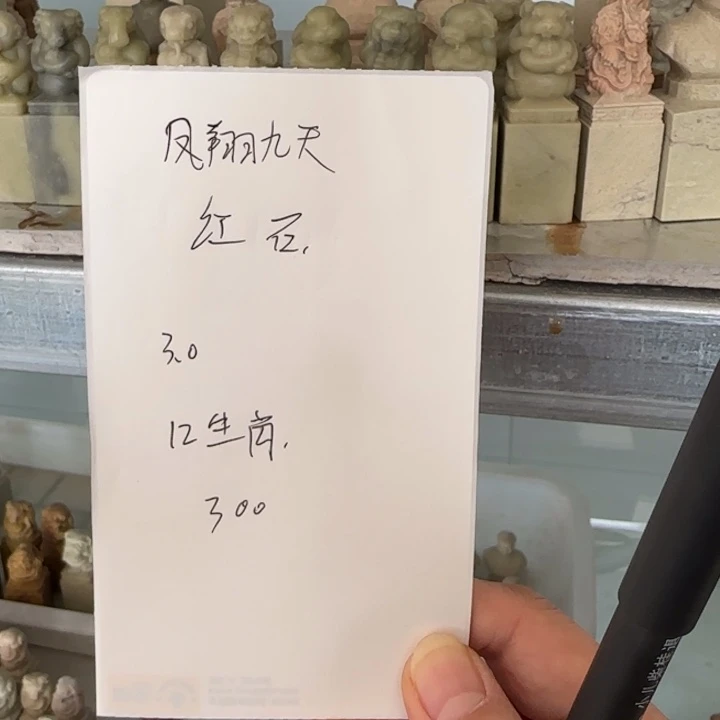 凤翔九天
红石.
3.0
12生肖.
300